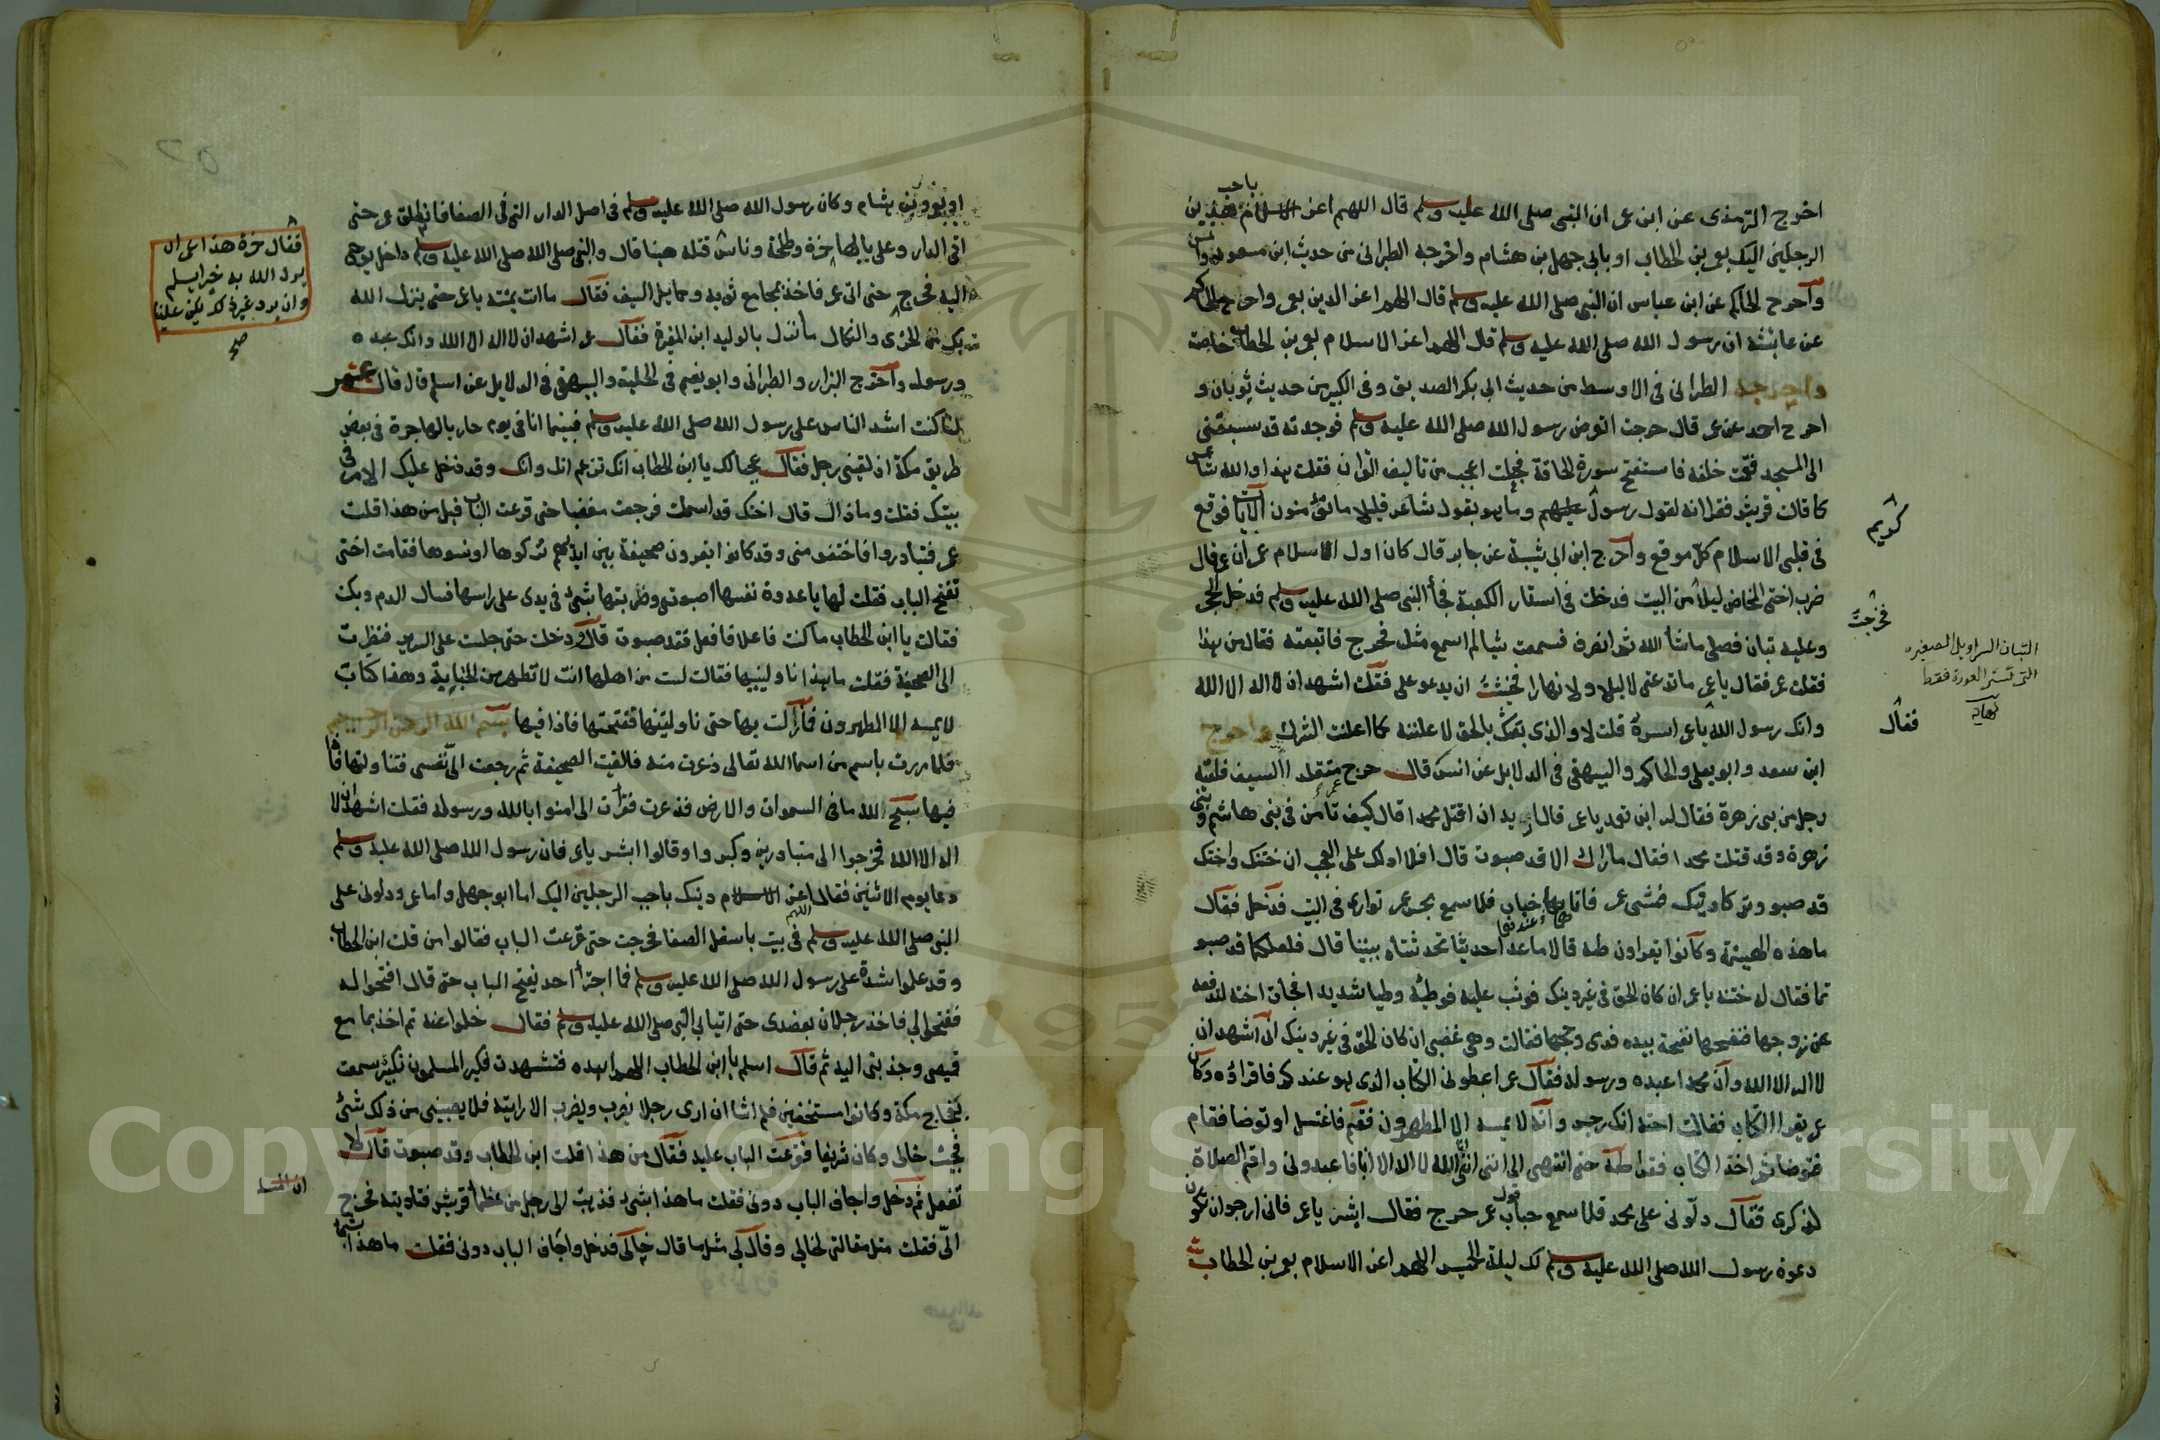 اخرج الترمذى عن ابن عمر ان النبى صلى الله عليه وسلم قال اللهم اعز الاسلام باحب هذين
الرجلين اليك بعمر بن الخطاب او بابى جهل بن هشام واخرجه الطبرانى من حديث ابن مسعود وانس
واخرج الحاكم عن ابن عباس ان النبى صلى الله عليه وسلم قال اللهم اعز الدين بعمر واخرج الحاكم
عن عائشة ان رسول الله صلى الله عليه وسلم قال اللهم اعز الاسلام بعمر بن الخطاب خاصة
واخرجه الطبرانى فى الاوسط من حديث ابى بكر الصديق وفى الكبير من حديث ثوبان و
اخرج احمد عن عمر قال خرجت اتعرض رسول الله صلى الله عليه وسلم فوجدته قد سبقنى
الى المسجد فقمت خلفه فاستفتح سورة الحاقة فجعلت اعجب من تاليف القران فقلت هذا والله شاعر
كما قالت قريش فقرا انه لقول رسول كريم وما هو بقول شاعر قليلا ما تؤمنون الايات فوقع
فى قلبى الاسلام كل موقع واخرج ابن ابى شيبة عن جابر قال كان اول اسلام عمر ان عمر قال
ضرب اختى المخاض ليلا فخرجت من البيت فدخلت فى استار الكعبة فجأ النبى صلى الله عليه وسلم فدخل الحجر
وعليه تبان فصلى ماشأ الله ثم انصرف فسمعت شيا لم اسمع مثله فخرج فاتبعته فقال من هذا
فقلت عمر فقال يا عمر ما تدعنى لا ليلا ولا نهارا فخشيت ان يدعو على فقلت اشهد ان لا اله الا الله
وانك رسول الله فقال يا عمر اسره قلت لا والذى بعثك بالحق لاعلننه كما اعلنت الشرك واخرج
ابن سعد وابو يعلى والحاكم والبيهقى فى الدلايل عن انس قال خرج عمر متقلدا السيف فلقيه
رجل من بنى زهرة فقال له اين تعمد يا عمر قال اريد ان اقتل محمدا قال كيف تامن فى بنى هاشم وبنى
زهرة وقد قتلت محمدا فقال ما اراك الا قد صبوت قال افلا ادلك على العجب ان ختنك واختك
قد صبوا وتركا دينك فمشى عمر فاتاهما وعندهما خباب فلما سمع بحس عمر توارى فى البيت فدخل فقال
ما هذه الهينمة وكانوا يقراون طه قالا ما عدا حديثا تحدثناه بيننا قال فلعلكما قد صبو
تما فقال له ختنه يا عمر ان كان الحق فى غير دينك فوثب عليه فوطئه وطيا شديدا فجات اخته لتدفعه
عن زوجها فنفحها نفحة بيده فدمى وجهها فقالت وهى غضبى ان كان الحق فى غير دينك انى اشهد ان
لا اله الا الله وان محمدا عبده ورسوله فقال عمر اعطونى الكتاب الذى هو عندكم فاقراؤه وكان
عمر يقرا الكتاب فقالت اخته انك رجس وانه لا يمسه الا المطهرون فقم فاغتسل او توضا فقام
فتوضا ثم اخذ الكتاب فقرا طه حتى انتهى الى اننى انا الله لا اله الا انا فاعبدونى واقم الصلاة
لذكرى فقال عمر دلونى على محمد فلما سمع خباب قول عمر خرج فقال ابشر يا عمر فانى ارجو ان تكون
دعوة رسول الله صلى الله عليه وسلم لك ليلة الخميس اللهم اعز الاسلام بعمر بن الخطاب
كريم
فخرجت
التبان السراويل الصغيرة
التى تستر العورة فقط
نهاية
فقال
او بعمرو بن هشام وكان رسول الله صلى الله عليه وسلم فى اصل الدار التى فى الصفا فانطلق عمر حتى
اتى الدار وعلى بابها حمزة وطلحة وناس
قال والنبى صلى الله عليه وسلم داخل يوحى
اليه فخرج حتى اتى عمر فاخذ بمجامع ثوبه وحمايل السيف فقال ما انت بمنته يا عمر حتى ينزل الله
بك من الخزى والنكال ما نزل بالوليد ابن المغيرة فقال عمر اشهد ان لا اله الا الله وانك عبده
ورسوله واخرج البزار والطبرانى وابو نعيم فى الحلية والبيهقى فى الدلايل عن اسلم قال قال عمر
كنت اشد الناس على رسول الله صلى الله عليه وسلم فبينما انا فى يوم حار بالهاجرة فى بعض
طريق مكة اذ لقينى رجل فقال عجبا لك يا ابن الخطاب انك تزعم انك وانك وقد دخل عليك الامر فى
بيتك فقلت وما ذاك قال اختك قد اسلمت فرجعت مغضبا حتى قرعت الباب قيل من هذا قلت
عمر فتبادروا فاختفوا منى وقد كانوا يقرون صحيفة بين ايديهم تركوها او نسوها فقامت اختى
تفتح الباب فقلت لها يا عدوة نفسها اصبوتى وضربتها بشئ فى يدى على راسها فسال الدم وبكت
فقالت يا ابن الخطاب ما كنت فاعلا فافعل فقد صبوت قال ودخلت حتى جلست على السرير فنظرت
الى الصحيفة فقلت ما هذا ناولينيها فقالت لست من اهلها انت لا تطهر من الجنابة وهذا كتاب
لا يمسه الا المطهرون فما زلت بها حتى ناولتنيها ففتحتها فاذا فيها بسم الله الرحمن الرحيم
فلما مررت باسم من اسما الله تعالى ذعرت منه فالقيت الصحيفة ثم رجعت الى نفسى فتناولتها فاذا
فيها سبح لله ما فى السموات والارض فذعرت فقرات الى امنوا بالله ورسوله فقلت اشهد ان لا
اله الا الله فخرجوا الى متبادرين وكبروا وقالوا ابشر يا عمر فان رسول الله صلى الله عليه وسلم
دعا يوم الاثنين فقال اللهم اعز دينك باحب الرجلين اليك اما ابو جهل واما عمر ودلونى على
النبى صلى الله عليه وسلم فى بيت باسفل الصفا فخرجت حتى قرعت الباب فقالوا من قلت ابن الخطاب
وقد علموا شدة على رسول الله صلى الله عليه وسلم فما اجترأ احد يفتح الباب حتى قال افتحوا له
ففتحوا لى فاخذ رجلان بعضدى حتى اتيا بى النبى صلى الله عليه وسلم فقال خلوا عنه ثم اخذ بمجامع
قميصى وجذبنى اليه ثم قال اسلم يا ابن الخطاب اللهم اهده فتشهدت فكبر المسلمون تكبيرة سمعت
بفجاج مكة وكانوا مستخفين فلم اشا ان ارى رجلا يضرب ويضرب الا رايته فلا يصيبنى من ذلك شئ
فجيت خالى وكان شريفا فقرعت الباب عليه فقال من هذا قلت ابن الخطاب وقد صبوت قال لا
تفعل ثم دخل واجاف الباب دونى فقلت ما هذا بشئ فذهبت الى رجل من عظما قريش فناديته فخرج
الى فقلت مثل مقالتى لخالى وقال لى مثل ما قال خالى فدخل واجاف الباب دونى فقلت ما هذا
فقال حمزة هذا عمر ان
يرد الله به خيرا يسلم
وان يرد غير ذلك يكن علينا
صح
Copyright © King Saud University
1957